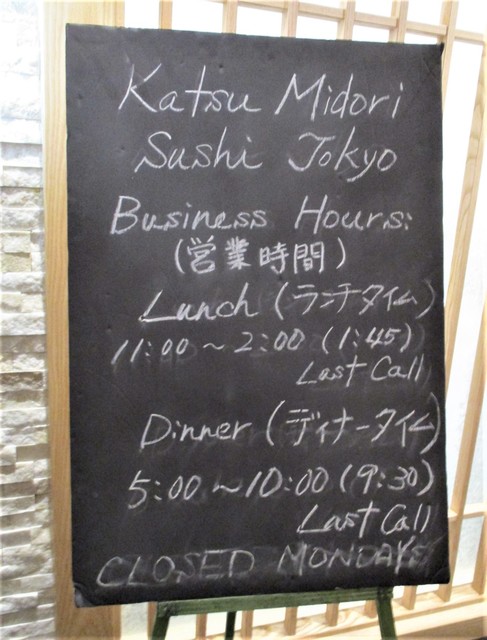 Katsu Midori
Sushi Tokyo
Business Hours:
(営業時間)
Lunch (ランチタイム)
11:00 ~ 2:00 (1:45)
Last Call
Dinner (ディナータイム)
5:00 ~ 10:00 (9:30)
Last Call
CLOSED MONDAYS